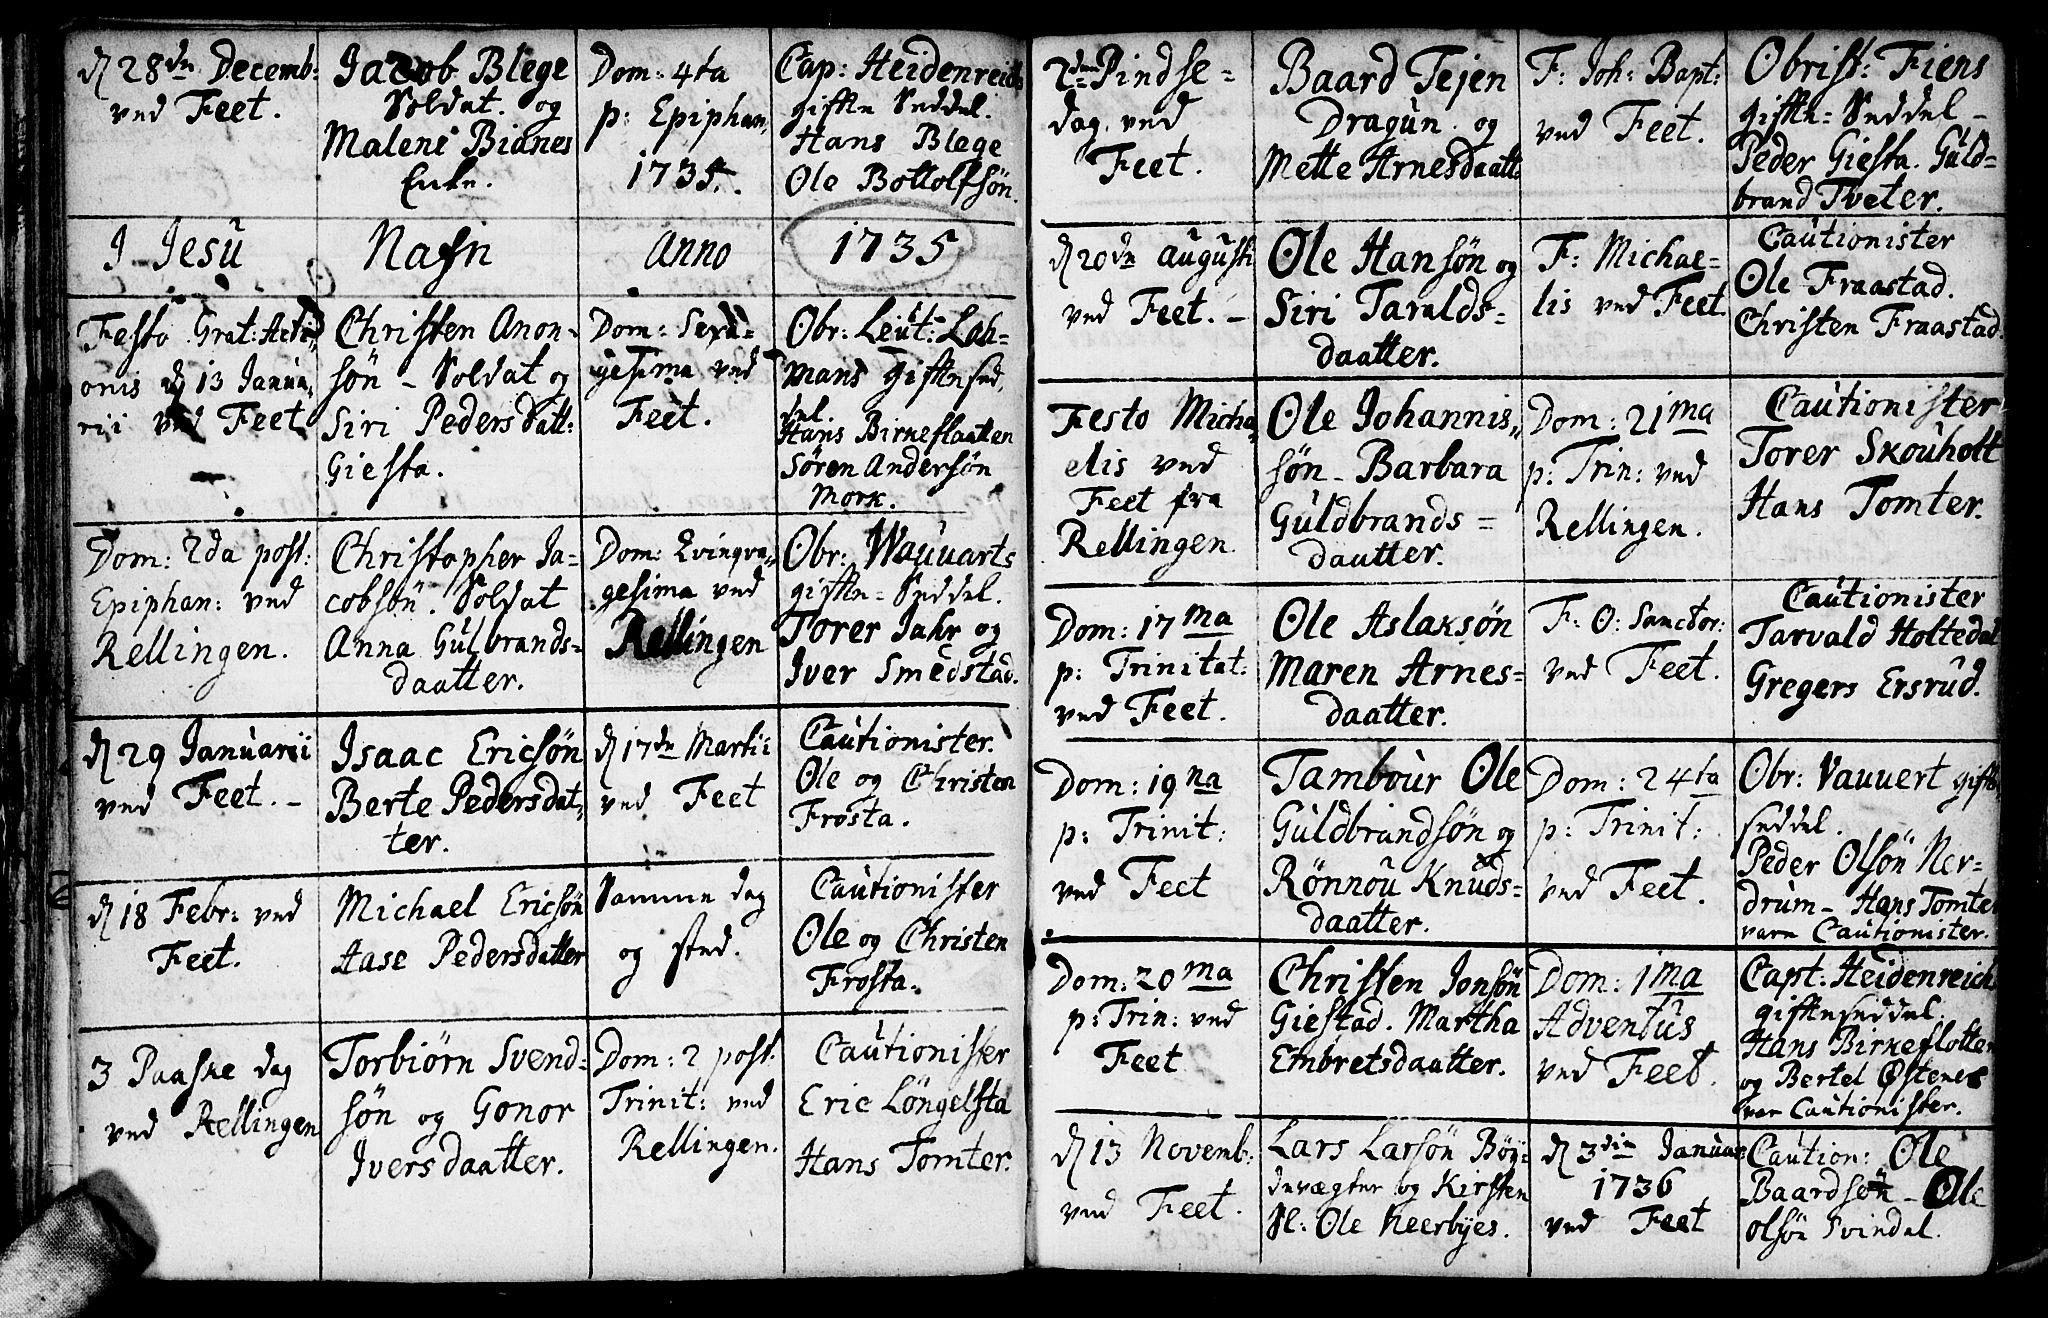 d 28de Decemb:
ved Feet.
Jacob Blege
Soldat. og
Maleni Bianes
Enke.
Dom: 4ta
p: Epiphan,
1735.
Cap: Heidenreichs
gifte Seddel.
Hans Blege
Ole Bottolfsön.
J Jesu Nafn Anno 1735
Festo Grat: Acti,,
onis d 13 Janua,
rii ved Feet
Christen Anon-
søn - Soldat og
Siri Pedersdatt:
Giesta.
Dom: Sexa-
gesima ved
Feet.
Obr: Leut: Loh-
mans giftesed,
del.
Hans Birkeflaatten
Søren Andersøn
Mork.
Dom: 2da post:
Epiphan: ved
Rellingen.
Christopher Ja-
cobsøn. Soldat
Anna Gulbrands-
daatter.
Dom: Qvinqva,,
gesima ved
Rellingen
Obr: Wauuarts
gifte-Seddel.
Torer Jahr og
Iver Smedstad.
d 29 Januarii
ved Feet. -
Isaac Ericsøn
Berte Pedersdat,
ter.
d 17de Martii
ved Feet
Cautionister.
Ole og Christen
Frosta.
d 18 Febr: ved
Feet.
Michael Ericsøn
Aase Pedersdatter
Samme dag
og sted.
Cautionister
Ole og Christen
Frosta.
3 Paaske dag
ved Rellingen
Torbiørn Svend-
søn og Gonor
Iversdaatter.
Dom: 2 post.
Trinit: ved
Rellingen.
Cautionister
Eric Löngelsta
Hans Tomter.
2den Pindse-
dag ved
Feet.
Baard Tejen
Dragun. og
Mette Arnesdaatt:
F: Joh: Bapt:
ved Feet.
Obrist: Fiens
gifte-Seddel -
Peder Giesta. Guld-
brand Tveter.
d 20de Augusti
ved Feet. -
Ole Hansøn og
Siri Taralds-
daatter.
F: Michae-
lis ved Feet
Cautionister
Ole Fraastad.
Christen Fraastad.
Festo Micha
elis ved
Feet fra
Rellingen
Ole Johannis,,
søn - Barbara
Guldbrands-
daatter.
Dom: 21ma
p: Trin: ved
Rellingen.
Cautionister
Torer Skouholt
Hans Tomter.
Dom: 17ma
p: Trinitat:
ved Feet.
Ole Aslaksøn
Maren Arnes-
daatter.
F: O: Sanctor:
ved Feet.
Cautionister
Tarvald Holtedal
Gregers Ersrud.
Dom: 19na
p: Trinit:
ved Feet
Tambour Ole
Guldbrandsøn og
Rönnou Knuds-
daatter.
Dom: 24ta
p: Trinit:
ved Feet.
Obr: Vauuert gifte
seddel.
Peder Olsøn Ner-
drum - Hans Tomter
vare Cautionister.
Dom: 20ma
p: Trin: ved
Feet
Christen Jonsøn
Giestad. Martha
Embretsdaatter.
Dom: 1ma
Adventus
ved Feet.
Capt: Heidenreichs
gifteseddel.
Hans Birkeflotten
og Bertel Østenes
var Cautionister.
d 13 Novemb:
ved Feet.
Lars Larsøn Bøy:
devægter og Kirsten
Sl: Ole Keerbyes.
d 3die Januar
1736
ved Feet
Caution: Ole
Baardsøn - Ole
Olsøn Svindal.